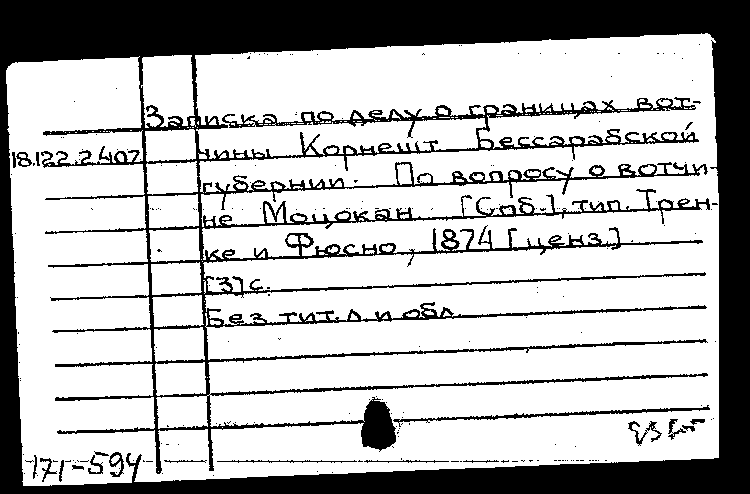 Записка по делу о границах вот-
18.122.2.407 чины Корнешт Бессарабской
губернии. По вопросу о вотчи-
не Моцокан. [Спб.], тип. Трен-
ке и Фюсно, 1874 [ценз.]
[3] с.
Без тит. л. и обл.
171-594